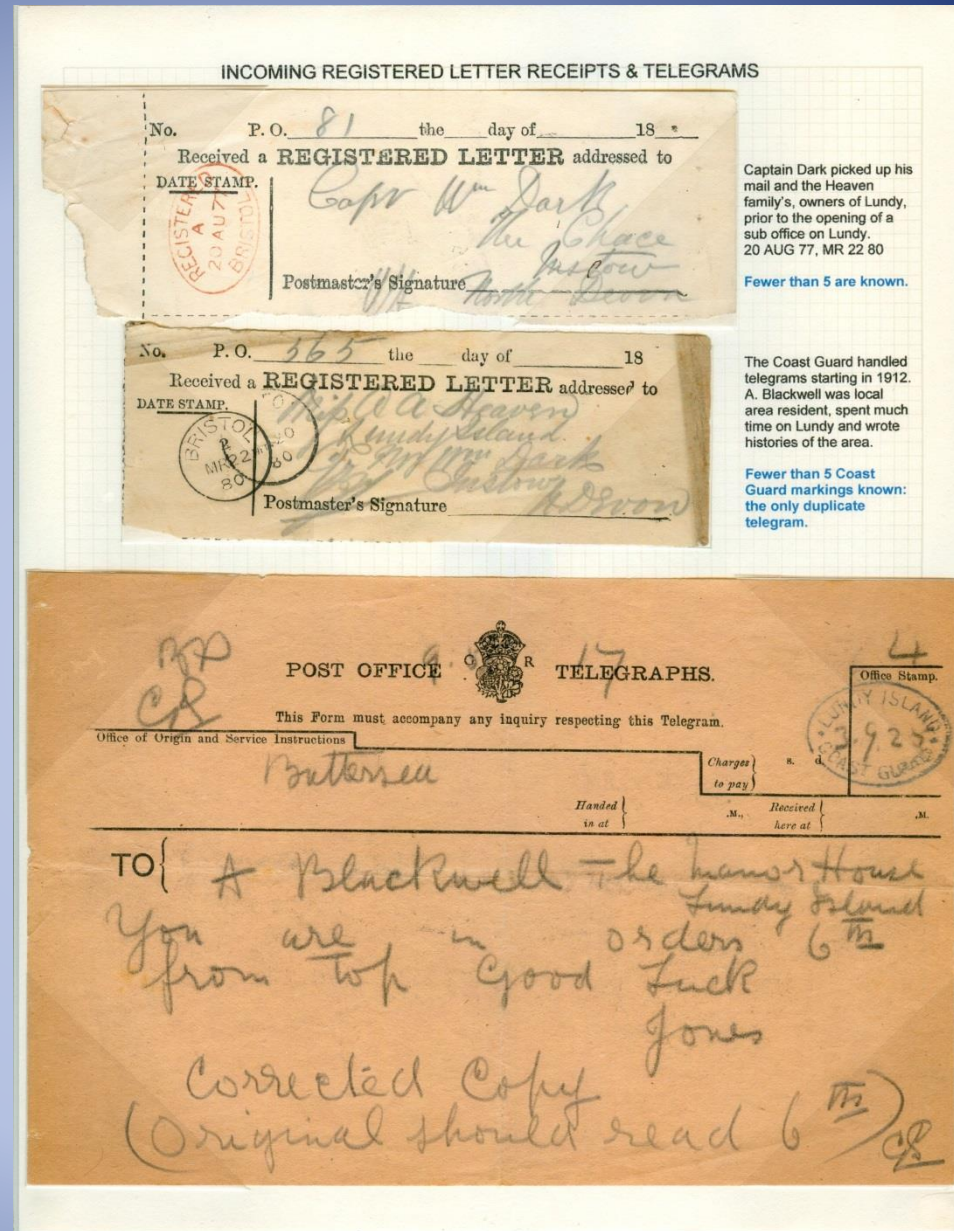 INCOMING REGISTERED LETTER RECEIPTS & TELEGRAMS
No. P. O. 81 the day of 18
Received a REGISTERED LETTER addressed to
DATE STAMP.
Capt Wm Dark
The Chace
Instow
Postmaster's Signature North Devon
REGISTERED
A
20 AU 77
BRISTOL
Captain Dark picked up his
mail and the Heaven
family's, owners of Lundy,
prior to the opening of a
sub office on Lundy.
20 AUG 77, MR 22 80
Fewer than 5 are known.
No. P. O. 365 the day of 18
Received a REGISTERED LETTER addressed to
DATE STAMP.
Miss A A Heaven
Lundy Island
Wm Dark
Instow
Postmaster's Signature N Devon
BRISTOL
MR 22
80
80
The Coast Guard handled
telegrams starting in 1912.
A. Blackwell was local
area resident, spent much
time on Lundy and wrote
histories of the area.
Fewer than 5 Coast
Guard markings known:
the only duplicate
telegram.
POST OFFICE G R TELEGRAPHS.
17
4
Office Stamp.
This Form must accompany any inquiry respecting this Telegram.
Office of Origin and Service Instructions
LUNDY ISLAND
3.9.25
COAST GUARD
Battersea
Charges to pay s. d.
Handed in at .M., Received here at .M.
TO A Blackwell The Manor House
Lundy Island
You are in orders 6th
from top Good Luck
Jones
Corrected Copy
(Original should read 6th)